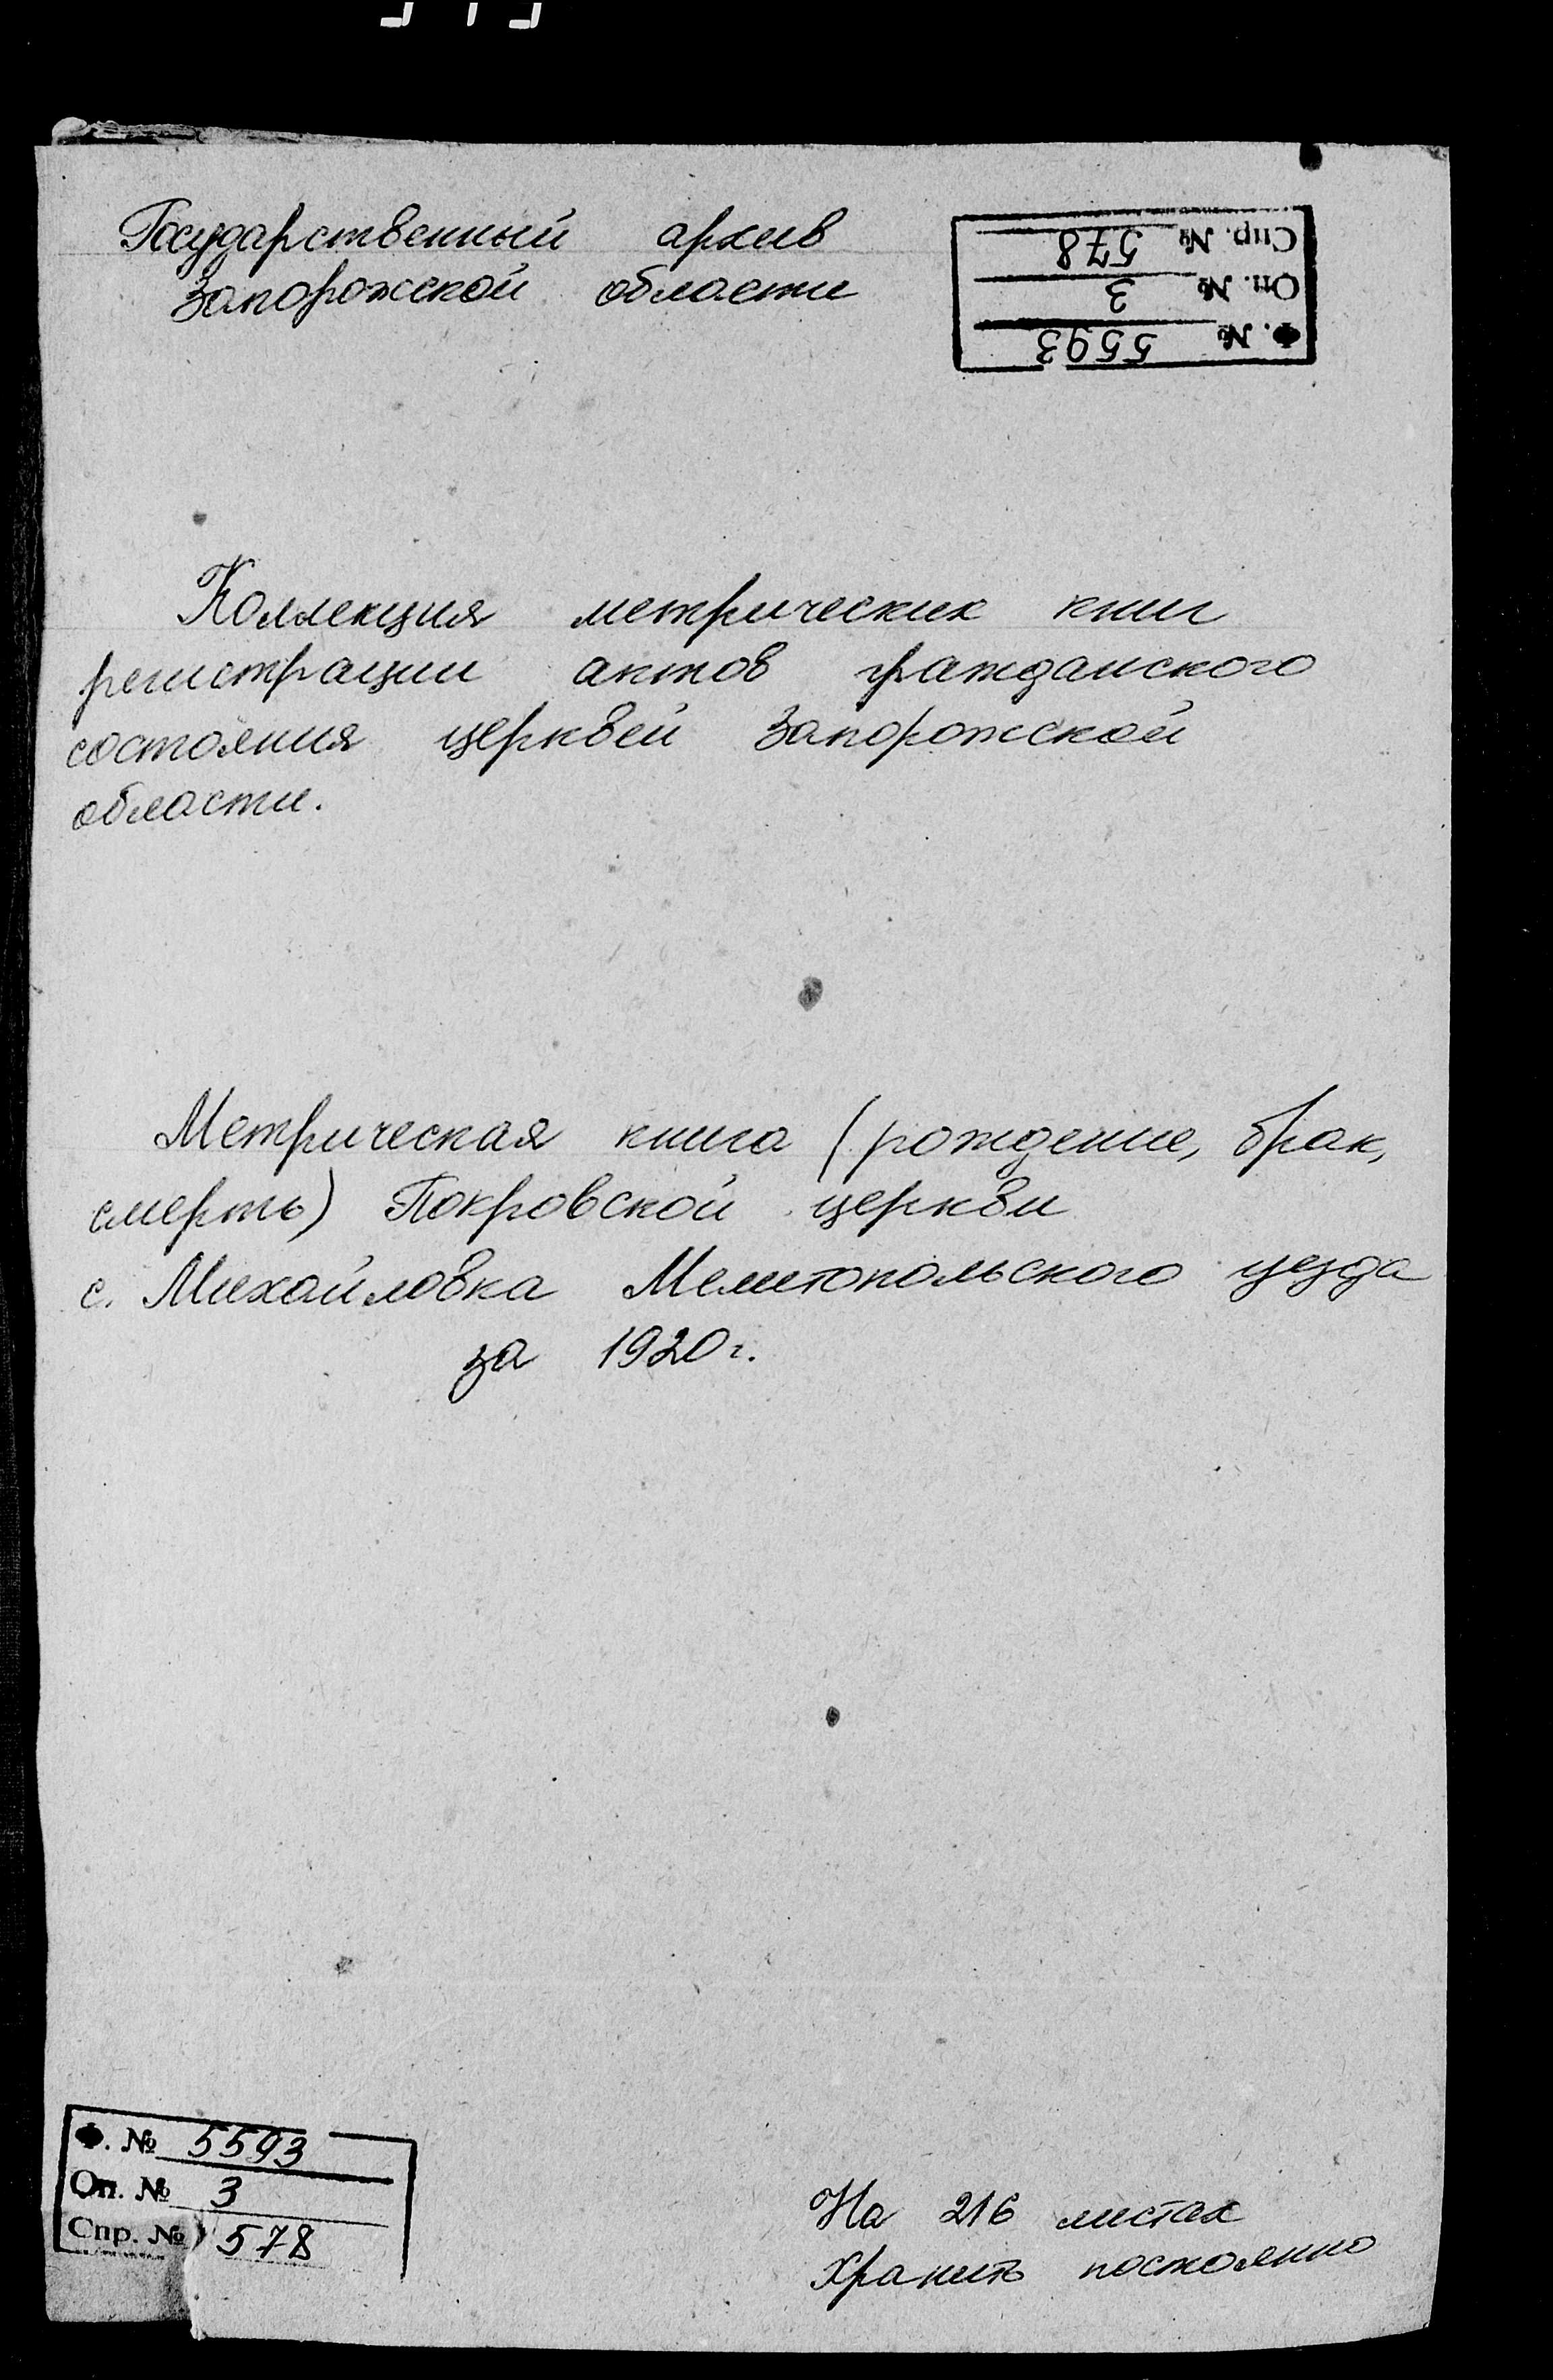 Государственный архив
Запорожской области
Спр. № 578
Оп. № 3
Ф. № 5593
Коллекция метрических книг
регистрации актов гражданского
состояния церквей Запорожской
области.
Метрическая книга (рождение, брак,
смерть) Покровской церкви
с. Михайловка Мелитопольского уезда
за 1920 г.
Ф. № 5593
Оп. № 3
Спр. № 578
На 216 листах
Хранить постоянно